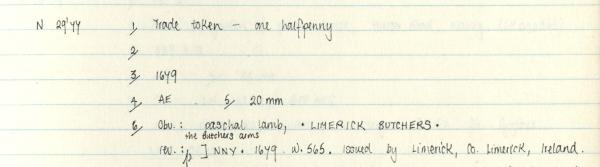 N 29'77 1, Trade token - one halfpenny
2,
3, 1679
4, AE 5, 20 mm
6, Obv.: paschal lamb, · LIMERICK BUTCHERS ·
the butchers arms
rev.: ] NNY · 1679 W. 565. Issued by Limerick, Co. Limerick, Ireland.